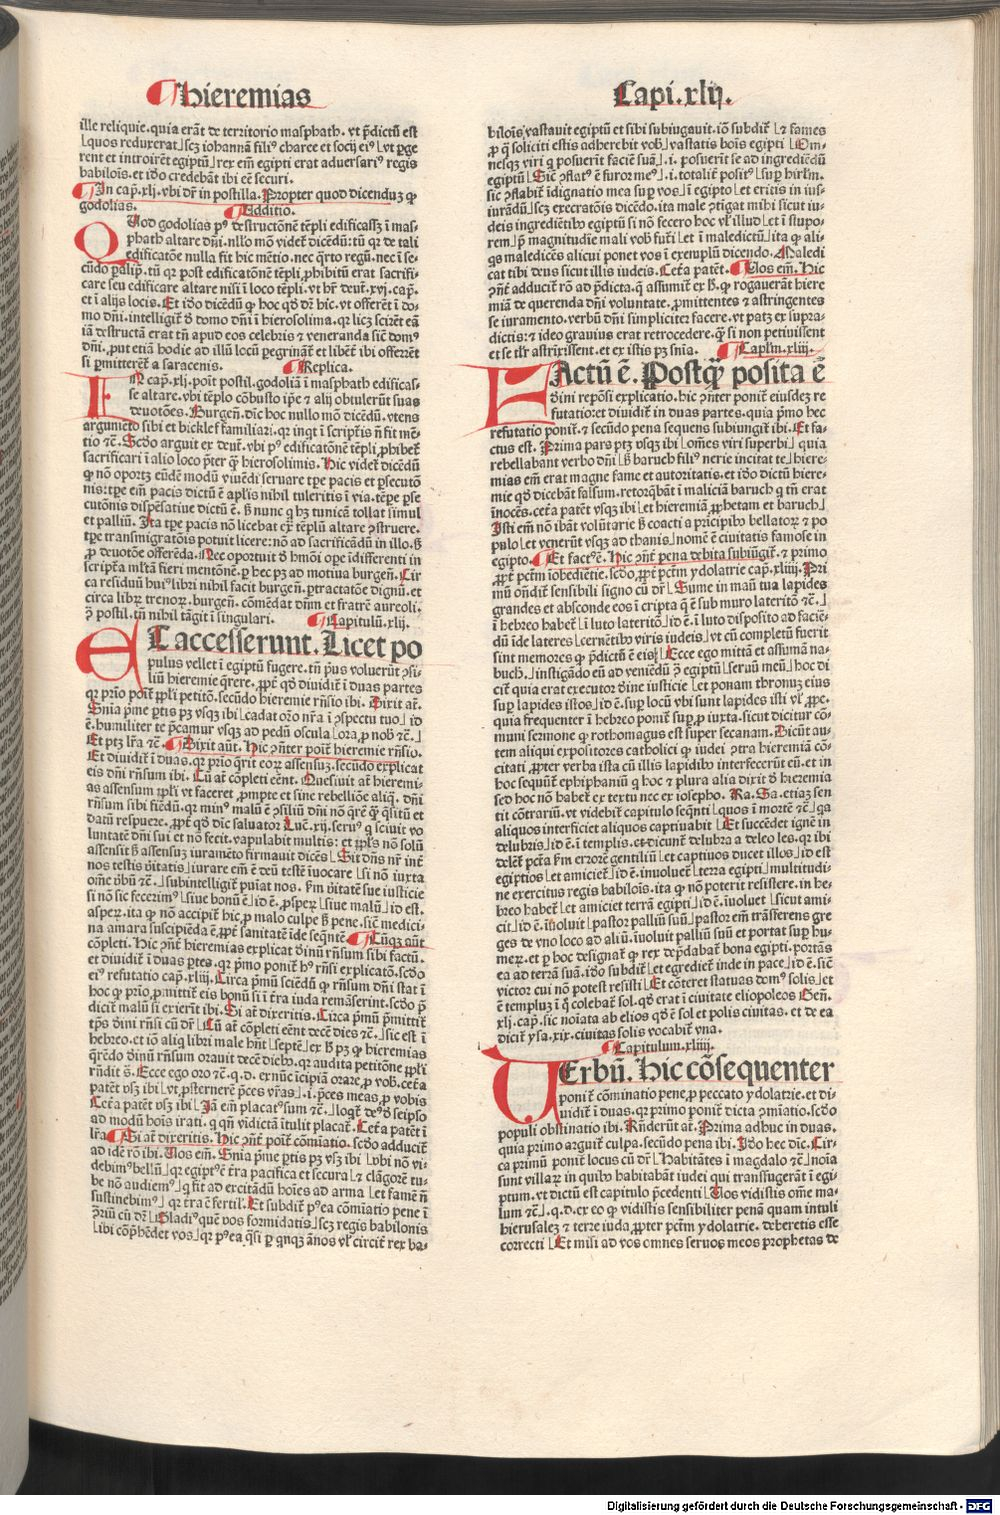 Hieremias
Capi.xlij.
ille reliquie.quia erãt de territorio masphath. vt p̃dictũ est
⌊quos reduxerat⌋scʒ iohannã filiꝰ charee et socij eiꝰ⌊vt ꝑge
rent et introirẽt egiptũ⌋rex em̃ egipti erat aduersariꝰ regis
babilois.et ido credebãt ibi eẽ securi.
In cap̃.xlj.vbi dr̃ in postilla.Propter quod dicenduʒ ꝙ
godolias. Additio.
QUod godolias pꝰ destructonẽ tẽpli edificassʒ ĩ mas-
phath altare dñi.nllõ mõ videt̃ dicẽdũ:tũ qꝛ de tali
edificatõne nulla fit hic mẽtio.nec q̃rto regũ.nec ĩ se-
cũdo paliꝑ.tũ qꝛ post edificatõnẽ tẽpli ꝓhibitũ erat sacrifi-
care seu edificare altare nisi ĩ loco tẽpli.vt hr̃ deut̃.xvj.cap̃.
et ĩ alijs locis.Et ido dicẽdũ ꝙ hoc qđ dr̃ hic.vt offerẽt ĩ do-
mo dñi.intelligit̃ đ domo dñi ĩ hierosolima.qꝛ licʒ scirẽt eã
iã destructã erat tñ apud eos celebris ⁊ veneranda sic̃ domꝰ
dñi.ꝓut etiã hodie ad illũ locũ ꝑegrinãt̃ et libẽt̃ ibi offerẽt
si ꝑmitterẽt̃ a saracenis. Replica.
IN cap̃.xlj.poĩt postil.godoliã ĩ masphath edificas-
se altare.vbi tẽplo cõbusto ip̃e ⁊ alij obtulerũt suas
deuotões.Burgeñ.dic̃ hoc nullo mõ dicẽdũ.vtens
argumẽto sibi et bicklef familiari.qꝛ inqt ĩ scriptis ñ fit mẽ-
tio ⁊c̃.Scđo arguit ex deut̃.vbi pꝰ edificatõnẽ tẽpli ꝓhibet̃
sacrificari ĩ alio loco p̃ter ꝙ̃ hierosolimis.Hic videt̃ dicẽdũ
ꝙ nõ oportʒ eũdẽ modũ viuẽdi seruare tꝑe pacis et ꝑsecutõ
nis:tꝑe em̃ pacis dictũ ẽ apl̃is nihil tuleritis ĩ via.tẽꝑe ꝑse
cutõnis dispẽsatiue dictũ ẽ.s̃ nunc q̃ hʒ tunicã tollat simul
et palliũ.Ita tꝑe pacis nõ licebat ex̃ tẽplũ altare ꝯstruere.
tꝑe transmigratõis potuit licere:nõ ad sacrificãdũ in illo.s̃
ꝓ deuotõe offerẽda.Nec oportuit đ hmõi oꝑe ĩdifferenti in
scriptẽa ml̃tã fieri mentõnẽ.ꝑ hec pʒ ad motiua burgeñ.Cir
ca residuũ huiꝰ libri nihil facit burgeñ.ꝑtractatõe dignũ.et
circa libꝝ trenoꝝ.burgeñ.cõmẽdat dñm et fratrẽ aureoli.
ꝯ̃ postil.tñ nihil tãgit ĩ singulari. Capitulũ.xlij.
ET accesserunt.Licet po
pulus vellet ĩ egiptũ fugere.tñ p̃us voluerũt ꝯsi-
liũ hieremie q̃rere.ꝓpt̃ qđ diuidit̃ ĩ duas partes
qꝛ prĩo poĩt̃ ꝓpl̃i petitõ.secũdo hieremie rñsio ibi.Dixit at̃.
Snĩa p̃me ꝑtis pʒ vsqʒ ibi⌊cadat orõ nr̃a ĩ ꝯspectu tuo⌋id
ẽ.humiliter te p̃camur vsqʒ ad pedũ oscula⌊ora ꝓ nob̃ ⁊c̃.⌋
Et ptʒ lr̃a ⁊c̃.Dixit aũt. Hic ꝯñter poĩt̃ hieremie rñsio.
Et diuidit̃ ĩ duas.qꝛ prĩo q̃rit eoꝝ assensuʒ.secũdo explicat
eis dñi rñsum ibi.Cũ at̃ cõpleti eẽnt.Quesiuit at̃ hieremi-
as assensum ꝓpl̃i vt faceret ꝓmpte et sine rebelliõe aliq̃.dñi
rñsum sibi fiẽdũ.qꝛ minꝰ malũ ẽ ꝯsiliũ dñi nõ q̃rẽ ꝙ̃ q̃sitũ et
datũ respuere.ꝓpt̃ qđ dic̃ saluator Luc̃.xij.seruꝰ q̃ sciuit vo
luntatẽ dñi sui et nõ fecit.vapulabit multis:et ꝓpl̃s nõ solũ
assensit s̃ assensuʒ iuramẽto firmauit dicẽs⌊Sit dñs nr̃ int̃
nos testis v̾itatis⌋iurare em̃ ẽ deũ testẽ ĩuocare⌊si nõ iuxta
om̃e v̾bũ ⁊c̃.⌋subintelligit̃ puĩat nos.s̃m v̾itatẽ sue iusticie
si nõ sic fecerimꝰ⌊siue bonũ ẽ⌋id ẽ.ꝓsꝑeꝝ⌊siue malũ⌋id est.
aspeꝝ.ita ꝙ nõ accipit̃ hic ꝓ malo culpe s̃ pene.sic̃ medici-
na amara suscipiẽda ẽ.ꝓpt̃ sanitatẽ ĩde seq̃ntẽ.Cũqʒ aũt
cõpleti.Hic ꝯñt̃ hieremias explicat đinũ rñsum sibi factũ.
et diuidit̃ ĩ duas ꝑtes.qꝛ p̃mo ponit̃ hꝰ rñsi explicatõ.scđo
eiꝰ refutatio cap̃.xliij.Circa p̃mũ sciẽdũ ꝙ rñsum dñi stat ĩ
hoc ꝙ prĩo ꝓmittit̃ eis bonũ si ĩ t̃ra iuda remãserint.scđo p̃
dicit̃ malũ si exierĩt ibi.Si at̃ dixeritis.Circa p̃mũ p̃mittit̃
tp̃s đini rñsi cũ dr̃⌊Cũ at̃ cõpleti eẽnt decẽ dies ⁊c̃.⌋sic est ĩ
hebreo.et iõ aliq̃ libri male hñt⌊septẽ⌋ex s̃ pʒ ꝙ hieremias
q̃rẽdo đinũ rñsum orauit decẽ dieb̃.qꝛ audita petitõne ꝓpl̃i
rñdit ẽ.Ecce ego oro ⁊c̃.q.d.ex nũc ĩcipiã orare ꝓ vob̃.cet̃a
patẽt vsʒ ibi⌊vt ꝓsternerẽ p̃ces vr̃as⌋.i.p̃ces meas ꝓ vobis
Cet̃a patẽt vsʒ ibi⌊Iã em̃ placatꝰ sum ⁊c̃.⌋loq̃t̃ deꝰ đ seipso
ad modũ hoĩs irati.q̃ qñ vidictã ĩtulit placat̃.Cet̃a patẽt ĩ
lr̃a Si at̃ dixeritis. Hic ꝯñt̃ poĩt̃ cõmĩatio.scđo adducit̃
ad idẽ rõ ibi.Uos em̃.Snĩa p̃me ꝑtis pʒ vsʒ ibi⌊vbi nõ vi-
debimꝰ bellũ⌋qꝛ egiptꝰ ẽ t̃ra pacifica et secura⌊⁊ clãgorẽ tu-
be nõ audiemꝰ⌋q̃ fit ad excitãdũ hoĩes ad arma⌊et famẽ ñ
sustinebimꝰ⌋qꝛ t̃ra ẽ fertil̃.Et subdit̃ pꝰea cõmĩatio pene ĩ
ꝯ̃riũ cũ dr̃⌊Gladiꝰ quẽ vos formidatis⌋scʒ regis babilonis
⌊ibi cõp̃hẽdet vos⌋qꝛ pꝰea q̃si ꝑ q̃nqʒ ãnos vl̃ circit̃ rex ba-
bilois vastauit egiptũ et sibi subiugauit.iõ subdit̃⌊⁊ fames
ꝓ q̃ soliciti estis adherebit vob̃⌋vastatis boĩs egipti⌊Om-
nesqʒ viri q̃ posuerĩt faciẽ suã⌋.i.posuerĩt se ad ingrediẽdũ
egiptũ⌊Sic̃ ꝯflatꝰ ẽ furor meꝰ⌋.i.totalit̃ positꝰ⌊suꝑ hirl̃m.
sic ꝯflabit̃ ĩdignatio mea suꝑ vos⌋ĩ egipto⌊et eritis in ius-
iurãdũ⌋scʒ execratõis dicẽdo.ita male ꝯtigat mihi sicut iu-
deis ingrediẽtibꝰ egiptũ si nõ fecero hoc vl̃ illud⌊et ĩ stupo-
rem⌋ꝓ magnitudĩe mali vob̃ fut̃i⌊et ĩ maledictũ⌋ita ꝙ ali-
q̃s maledicẽs alicui ponet vos ĩ exemplũ dicendo.Maledi
cat tibi deus sicut illis iudeis.Cet̃a patẽt.Uos em̃.Hic
ꝯñt̃ adducit̃ rõ ad p̃dicta.q̃ assumit̃ ex s̃.ꝙ rogauerãt hiere
miã de querenda dñi voluntate.ꝓmittentes ⁊ astringentes
se iuramento.verbũ dñi simpliciter facere.vt patʒ ex supra-
dictis:⁊ ideo grauius erat retrocedere.ꝙ̃ si non petiuissent
et se tl̃r astrixissent.et ex istis pʒ snĩa. Capl̃m.xliij.
FActũ ẽ.Postꝙ̃ posita ẽ
đini repõsi explicatio.hic ꝯñter ponit̃ eiusdeʒ re
futatio:et diuidit̃ in duas partes.quia p̃mo hec
refutatio ponit̃.⁊ secũdo pena sequens subiungit̃ ibi.Et fa-
ctus est.Prima pars ptʒ vsqʒ ibi⌊om̃es viri superbi⌋quia
rebellabant verbo dñi⌊s̃ baruch filiꝰ nerie incitat te⌋hiere-
mias em̃ erat magne fame et autoritatis.et ido dictũ hiere-
mie qđ dicebãt falsum.retorq̃bãt ĩ maliciã baruch q̃ tñ erat
ĩnocẽs.cet̃a patẽt vsqʒ ibi⌊et hieremiã ꝓphetam et baruch⌋
Isti em̃ nõ ibãt volũtarie s̃ coacti a prĩcipib̃ bellatoꝝ ⁊ po
pulo⌊et venerũt vsqʒ ad thanis⌋nomẽ ẽ ciuitatis famose in
egipto.Et factꝰ ẽ.Hic ꝯñt̃ pena debita subiũgit̃.⁊ primo
ꝓpt̃ pctm̃ iobediẽtie.scđo ꝓpt̃ pctm̃ ydolatrie cap̃.xliiij.Pri
mũ oñdit̃ sensibili signo cũ dr̃⌊Sume in maũ tua lapides
grandes et absconde eos ĩ cripta q̃ ẽ sub muro lateritõ ⁊c̃.⌋
ĩ hebreo habet̃⌊ĩ luto lateritõ⌋id ẽ.ĩ luto disposito ad faciẽ-
dũ ĩde lateres⌊cernẽtibꝰ viris iudeis⌋vt cũ completũ fuerit
sint memores ꝙ p̃dictũ ẽ eis⌊Ecce ego mittã et assumã na-
buch̃.⌋instigãdo eũ ad veniẽdũ ꝯ̃ egiptũ⌊seruũ meũ⌋hoc di
cit̃ quia erat executor đine iusticie⌊et ponam thronuʒ eius
suꝑ lapides istos⌋id ẽ.suꝑ locũ vbi sunt lapides isti vl̃ ꝓpe.
quia frequenter ĩ hebreo ponit̃ suꝑ ꝓ iuxta.sicut dicitur cõ-
muni sermone ꝙ rothomagus est super secanam.Dicũt au-
tem aliqui expositores catholici ꝙ iudei ꝯtra hieremiã cõ-
citati ꝓpter verba ista cũ illis lapidibꝰ interfecerũt eũ.et in
hoc sequũt̃ ephiphaniũ q̃ hoc ⁊ plura alia dixit đ hieremia
sed hoc nõ habet̃ ex textu nec ex iosepho. Ra.Sa.etiaʒ sen
tit cõtrariũ.vt videbit̃ capitulo seq̃nti⌊quos ĩ mortẽ ⁊c̃.⌋qa
aliquos interficiet aliquos captiuabit⌊Et succẽdet ignẽ in
delubris⌋id ẽ.ĩ templis.et dicunt̃ delubra a deleo les.qꝛ ibi
delẽt̃ pct̃a s̃m errorẽ gentiliũ⌊et captiuos ducet illos⌋id est
egiptios⌊et amiciet̃⌋id ẽ.inuoluet̃⌊terra egipti⌋multitudi-
ne exercitus regis babilois.ita ꝙ nõ poterit resistere.in he-
breo habet̃⌊et amiciet terrã egipti⌋id ẽ.ĩuoluet⌊sicut ami-
cit⌋id ẽ.ĩuoluit⌊pastor palliũ suũ⌋pastor em̃ trãsferens gre
ges de vno loco ad aliũ.ĩuoluit palliũ suũ et portat suꝑ hu-
meꝝ.et ꝑ hoc designat̃ ꝙ rex dep̃dabat̃ bona egipti.portãs
ea ad terrã suã.ido subdit̃⌊et egrediet̃ inde in pace⌋id ẽ.sic̃
victor cui nõ potest resisti⌊Et cõteret statuas domꝰ solis⌋et
ẽ templuʒ ĩ q̃ colebat̃ sol.qđ erat ĩ ciuitate eliopoleos Geñ.
xlj.cap̃.sic noĩata ab elios qđ ẽ sol et polis ciuitas.et de ea
dicit̃ ysa.xix.ciuitas solis vocabit̃ vna.
Capitulum.xliiij.
UErbũ.Hic cõsequenter
ponit̃ cõminatio pene ꝓ peccato ydolatrie.et di-
uidit̃ ĩ duas.qꝛ primo ponit̃ dicta ꝯmĩatio.scđo
populi obstinatio ibi.Rñderũt at̃.Prima adhuc in duas.
quia primo arguit̃ culpa.secũdo pena ibi.Ido hec dic̃.Cir-
ca primũ ponit̃ locus cũ dr̃⌊Habitãtes ĩ magdalo ⁊c̃⌋noĩa
sunt villaꝝ in quibꝰ habitabãt iudei qui transfugerãt ĩ egi-
ptum.vt dictũ est capitulo p̃cedenti⌊Uos vidistis om̃e ma-
lum ⁊c̃.⌋.q.d.ex eo ꝙ vidistis sensibiliter penã quam intuli
hierusaleʒ ⁊ terre iuda ꝓpter pctm̃ ydolatrie.deberetis esse
correcti⌊Et misi ad vos omnes seruos meos prophetas de
Digitalisierung gefördert durch die Deutsche Forschungsgemeinschaft - DFG